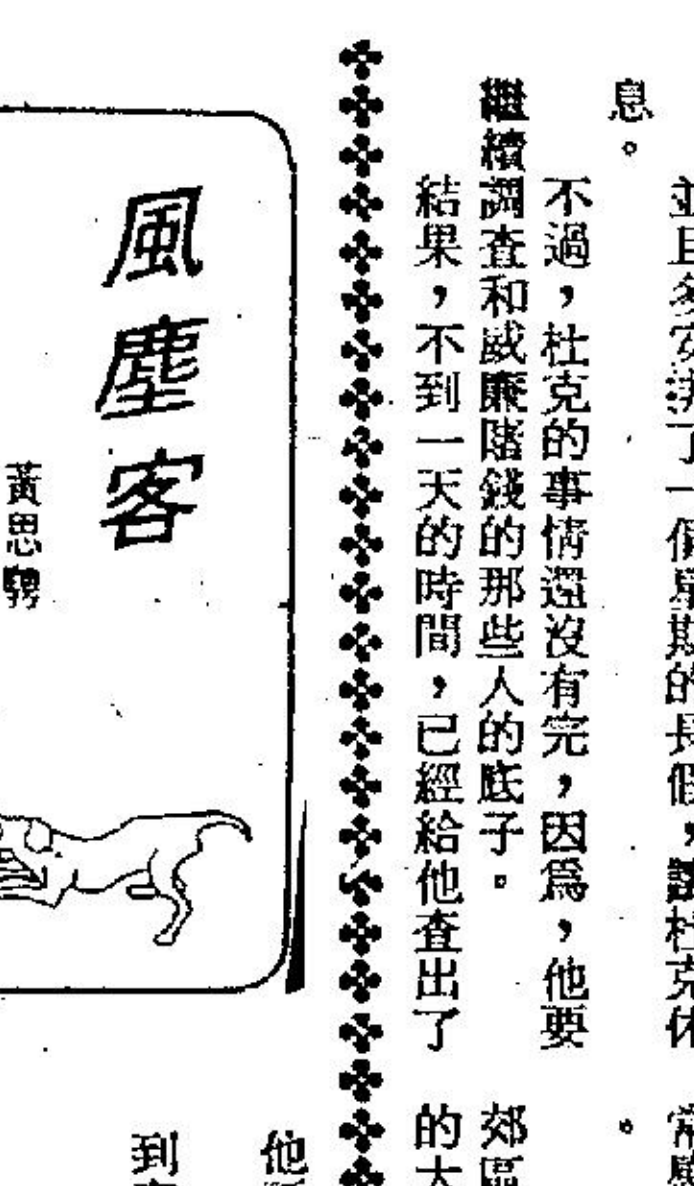 並且多安排了一個星期的長假，讓杜克休
息。
不過，杜克的事情還沒有完，因爲，他要
繼續調查和威廉賭錢的那些人的底子。
結果，不到一天的時間，已經給他查出了
風塵客
黃思騁
郊區
的大
他
到